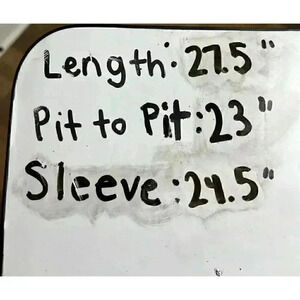 Length: 27.5"
Pit to Pit: 23"
Sleeve: 24.5"